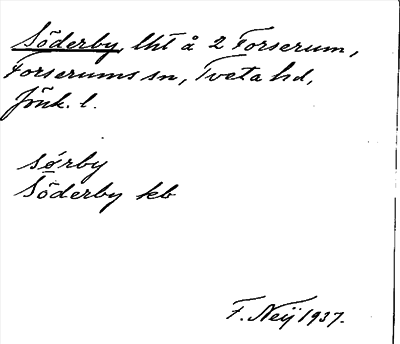 Söderby, lht å 2 Forserum,
Forserums sn, Tveta hd,
Jönk. l.
sørby
Söderby kb
F. Neij 1937.